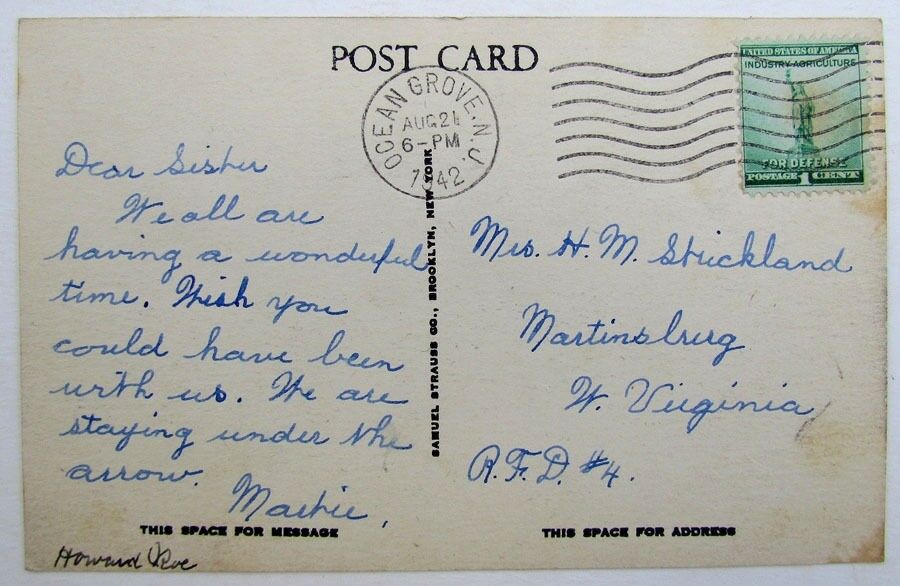 POST CARD
OCEAN GROVE, N.J.
AUG 21
6-PM
1942
UNITED STATES OF AMERICA
INDUSTRY AGRICULTURE
FOR DEFENSE
POSTAGE 1 CENT
Dear Sister
We all are
having a wonderful
time. Wish you
could have been
with us. We are
staying under the
arrow.
THIS SPACE FOR MESSAGE
Howard Roe
SAMUEL STRAUSS CO., BROOKLYN, NEW YORK
Mrs. H. M. Strickland
Martinsburg
W. Virginia
R.F.D. #4.
THIS SPACE FOR ADDRESS